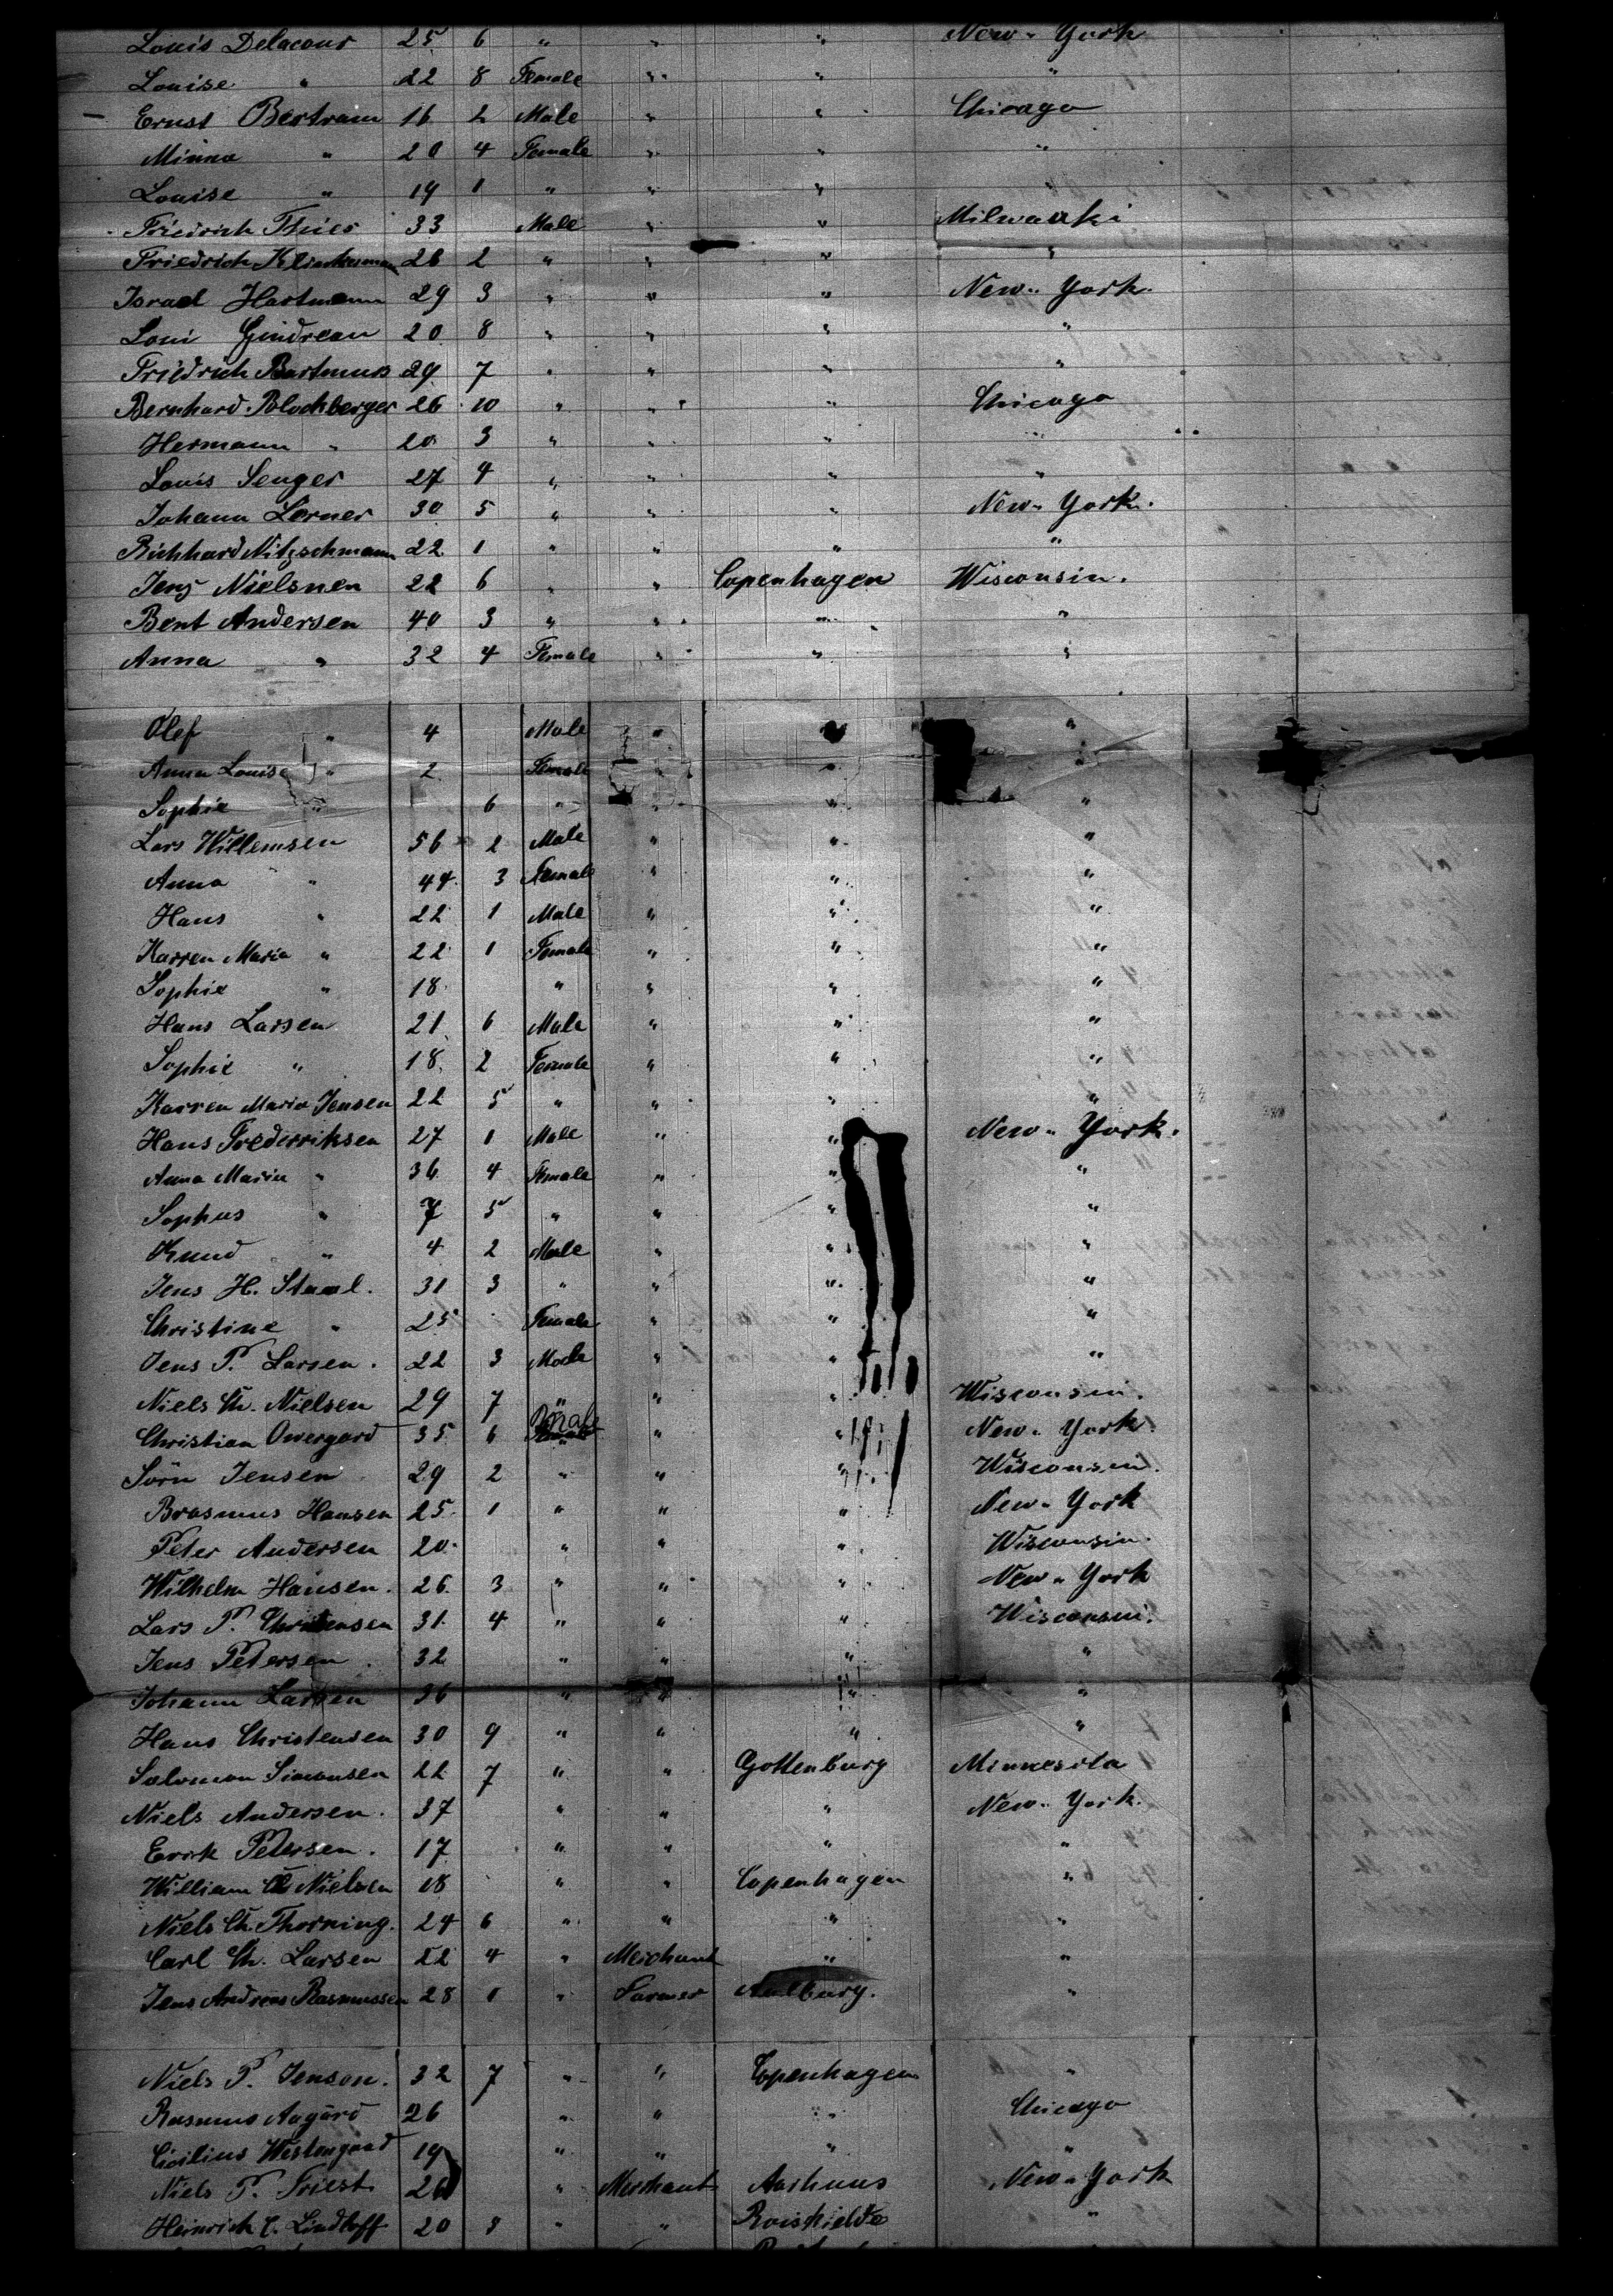 Louis Delacour 25 6 " " " New-York
Louise " 22 8 Female " " "
Ernst Bertram 16 2 Male " " Chicago
Minna " 20 4 Female " " "
Louise " 19 1 " " " "
Friedrich Thies 33 Male " " Milwauki
Friedrich 26 2 " " " "
Israel Hartmann 29 3 " " " New-York.
Loui Gindreau 20 8 " " " "
Friedrich Bartmuss 29 7 " " " "
Bernhard Blochberger 26 10 " " " Chicago
Hermann " 20 3 " " " "
Louis Senger 27 4 " " " "
Johann Lerner 30 5 " " " New-York.
Richhard Nitzschmann 22 1 " " " "
Jens Nielsnen 22 6 " " Copenhagen Wisconsin.
Bent Andersen 40 3 " " " "
Anna " 32 4 Female " " "
Olef " 4 Male " " "
Anna Louise " 2 Female " " "
Sophie " 6 " " " "
Lars Willemsen 56 2 Male " " "
Anna " 44 3 Female " " "
Hans " 22 1 Male " " "
Karren Maria " 22 1 Female " " "
Sophie " 18 " " " "
Hans Larsen 21 6 Male " " "
Sophie " 18 2 Female " " "
Karren Maria Jensen 22 5 " " " "
Hans Frederriksen 27 1 Male " " New-York.
Anna Maria " 36 4 Female " " "
Sophus " 7 5 " " " "
Knud " 4 2 Male " " "
Jens H. Staal. 31 3 " " " "
Christine " 25 Female " " "
Jens P. Larsen. 22 3 Male " " "
Niels Ch. Nielsen 29 7 " " " Wisconsin.
Christian Owergard 35 6 Male " " New-York.
Sörn Jensen 29 2 " " " Wisconsin.
Brasmus Hansen 25 1 " " " New-York
Peter Andersen 20 " " " Wisconsin.
Wilhelm Hansen. 26 3 " " " New-York
Lars P. Christensen 31 4 " " " Wisconsin.
Jens Petersen 32 " " " "
Johann Larsen 36 " " " "
Hans Christensen 30 9 " " " "
Salomon Simonsen 22 7 " " Gottenburg Minnesota
Niels Andersen. 37 " " " New-York.
Erik Petersen. 17 " " " "
William Ch Nielsen 18 " " Copenhagen "
Niels Ch. Thorning. 24 6 " " " "
Carl Ch. Larsen 22 4 " Merchant " "
Jens Andreas Rasmussen 28 1 " Farmer Aalburg. "
Niels P. Jenson. 32 7 " " Copenhagen "
Rasmus Aagård 26 " " " Chicago
Cicilius Westengaad 19 " " " "
Niels P. Friest 26 " Merchant Aarhuus New-York
Heinrich C. Lindhoff 20 3 " " Roiskielde "